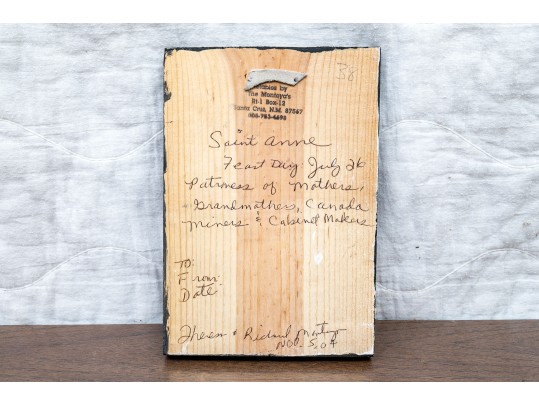 38
Retablos by
The Montoya's
Rt-1 Box-12
Santa Cruz, N.M. 87567
Saint Anne
Feast Day July 26
Patroness of Mothers,
Grandmothers, Canada
Miners & Cabinet Makers
TO:
From:
Date:
Theresa & Richard Montoya
NOV. 5, 04